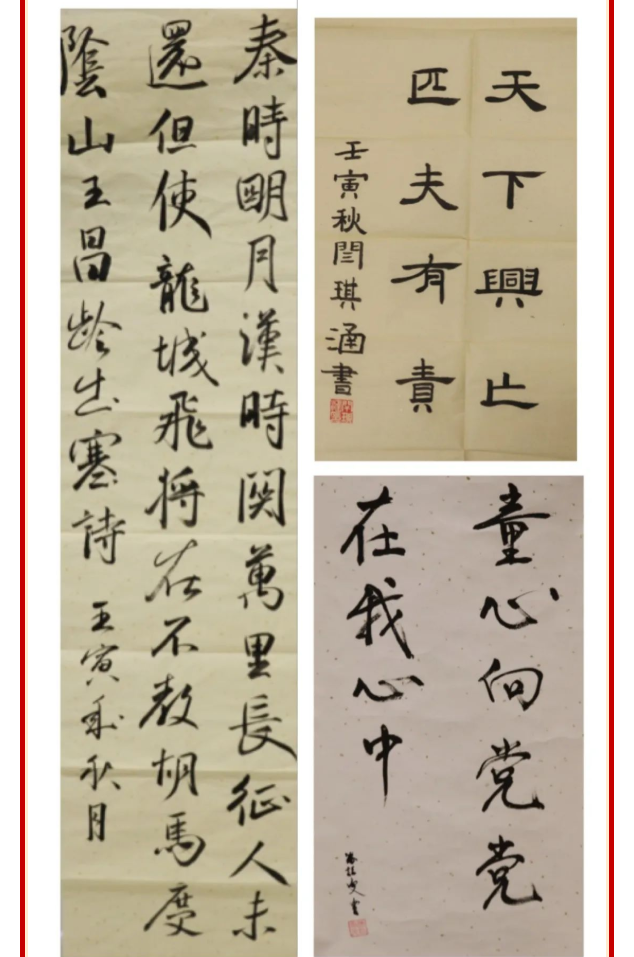 秦時明月漢時関萬里長征人未
還但使龍城飛将在不教胡馬度
陰山王昌龄出塞詩 壬寅年秋月
天下興亡
匹夫有責
壬寅秋閆琪涵書
童心向党党
在我心中